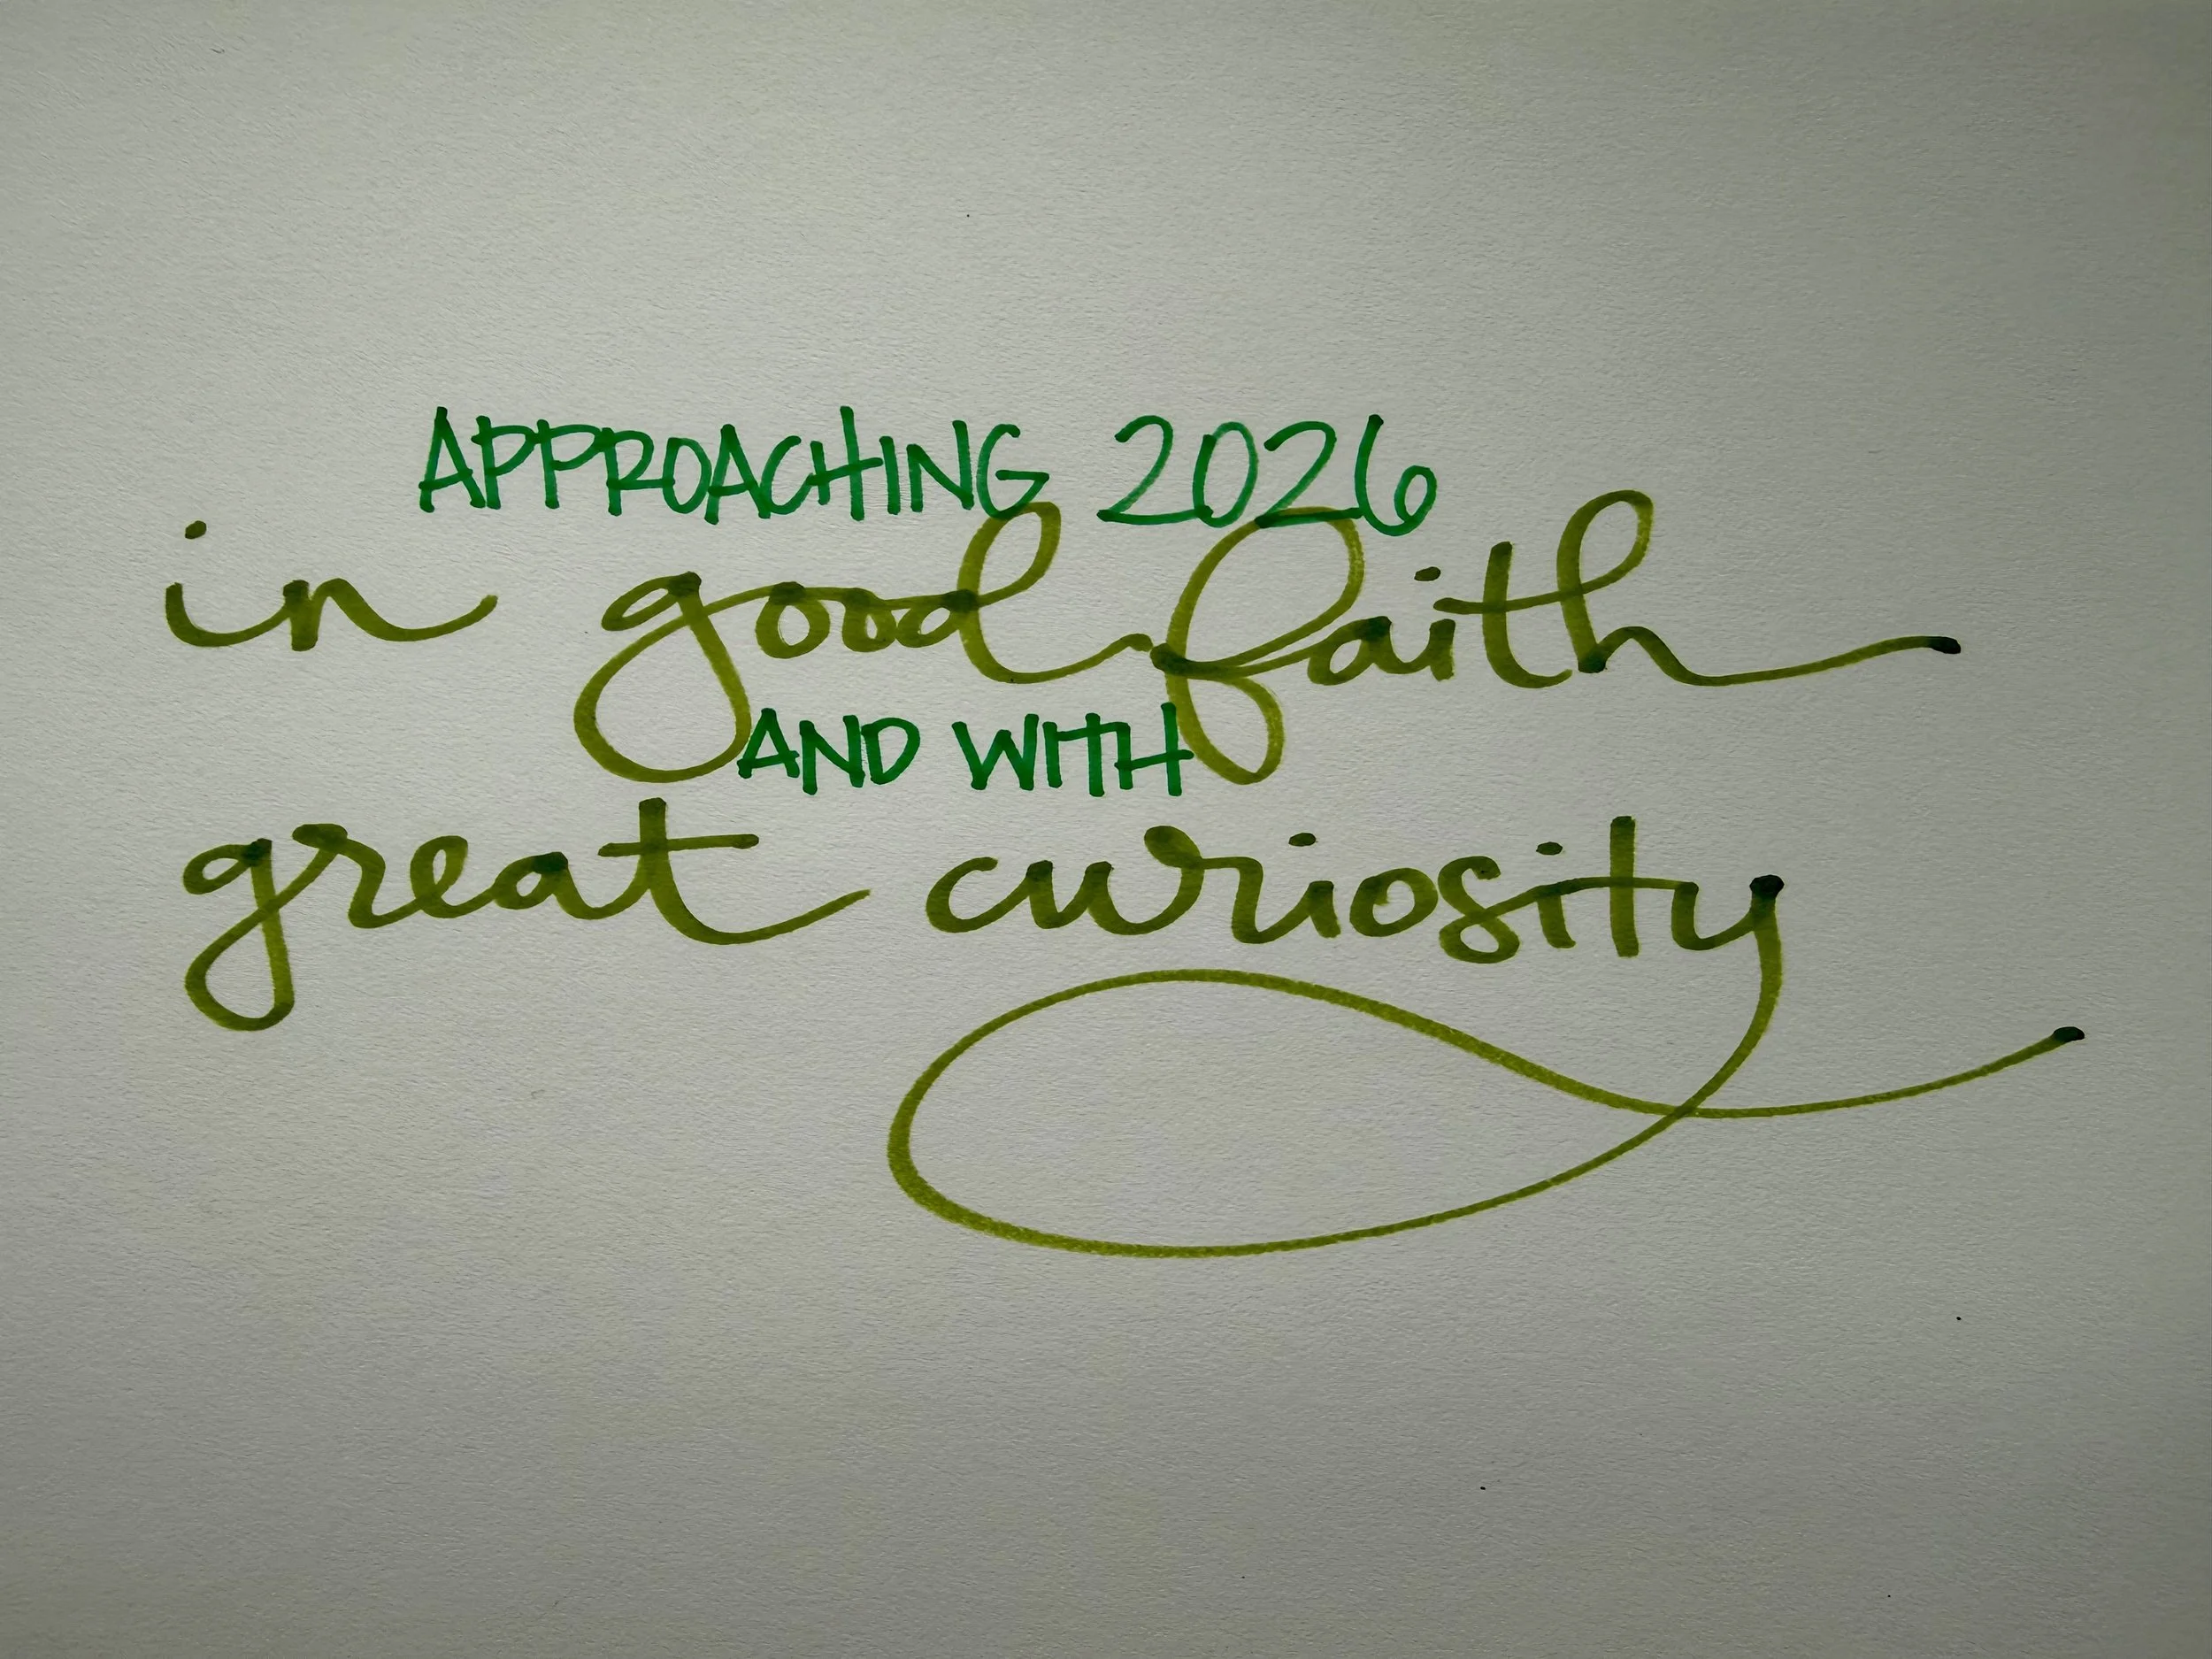 APPROACHING 2026
in good faith
AND WITH
great curiosity